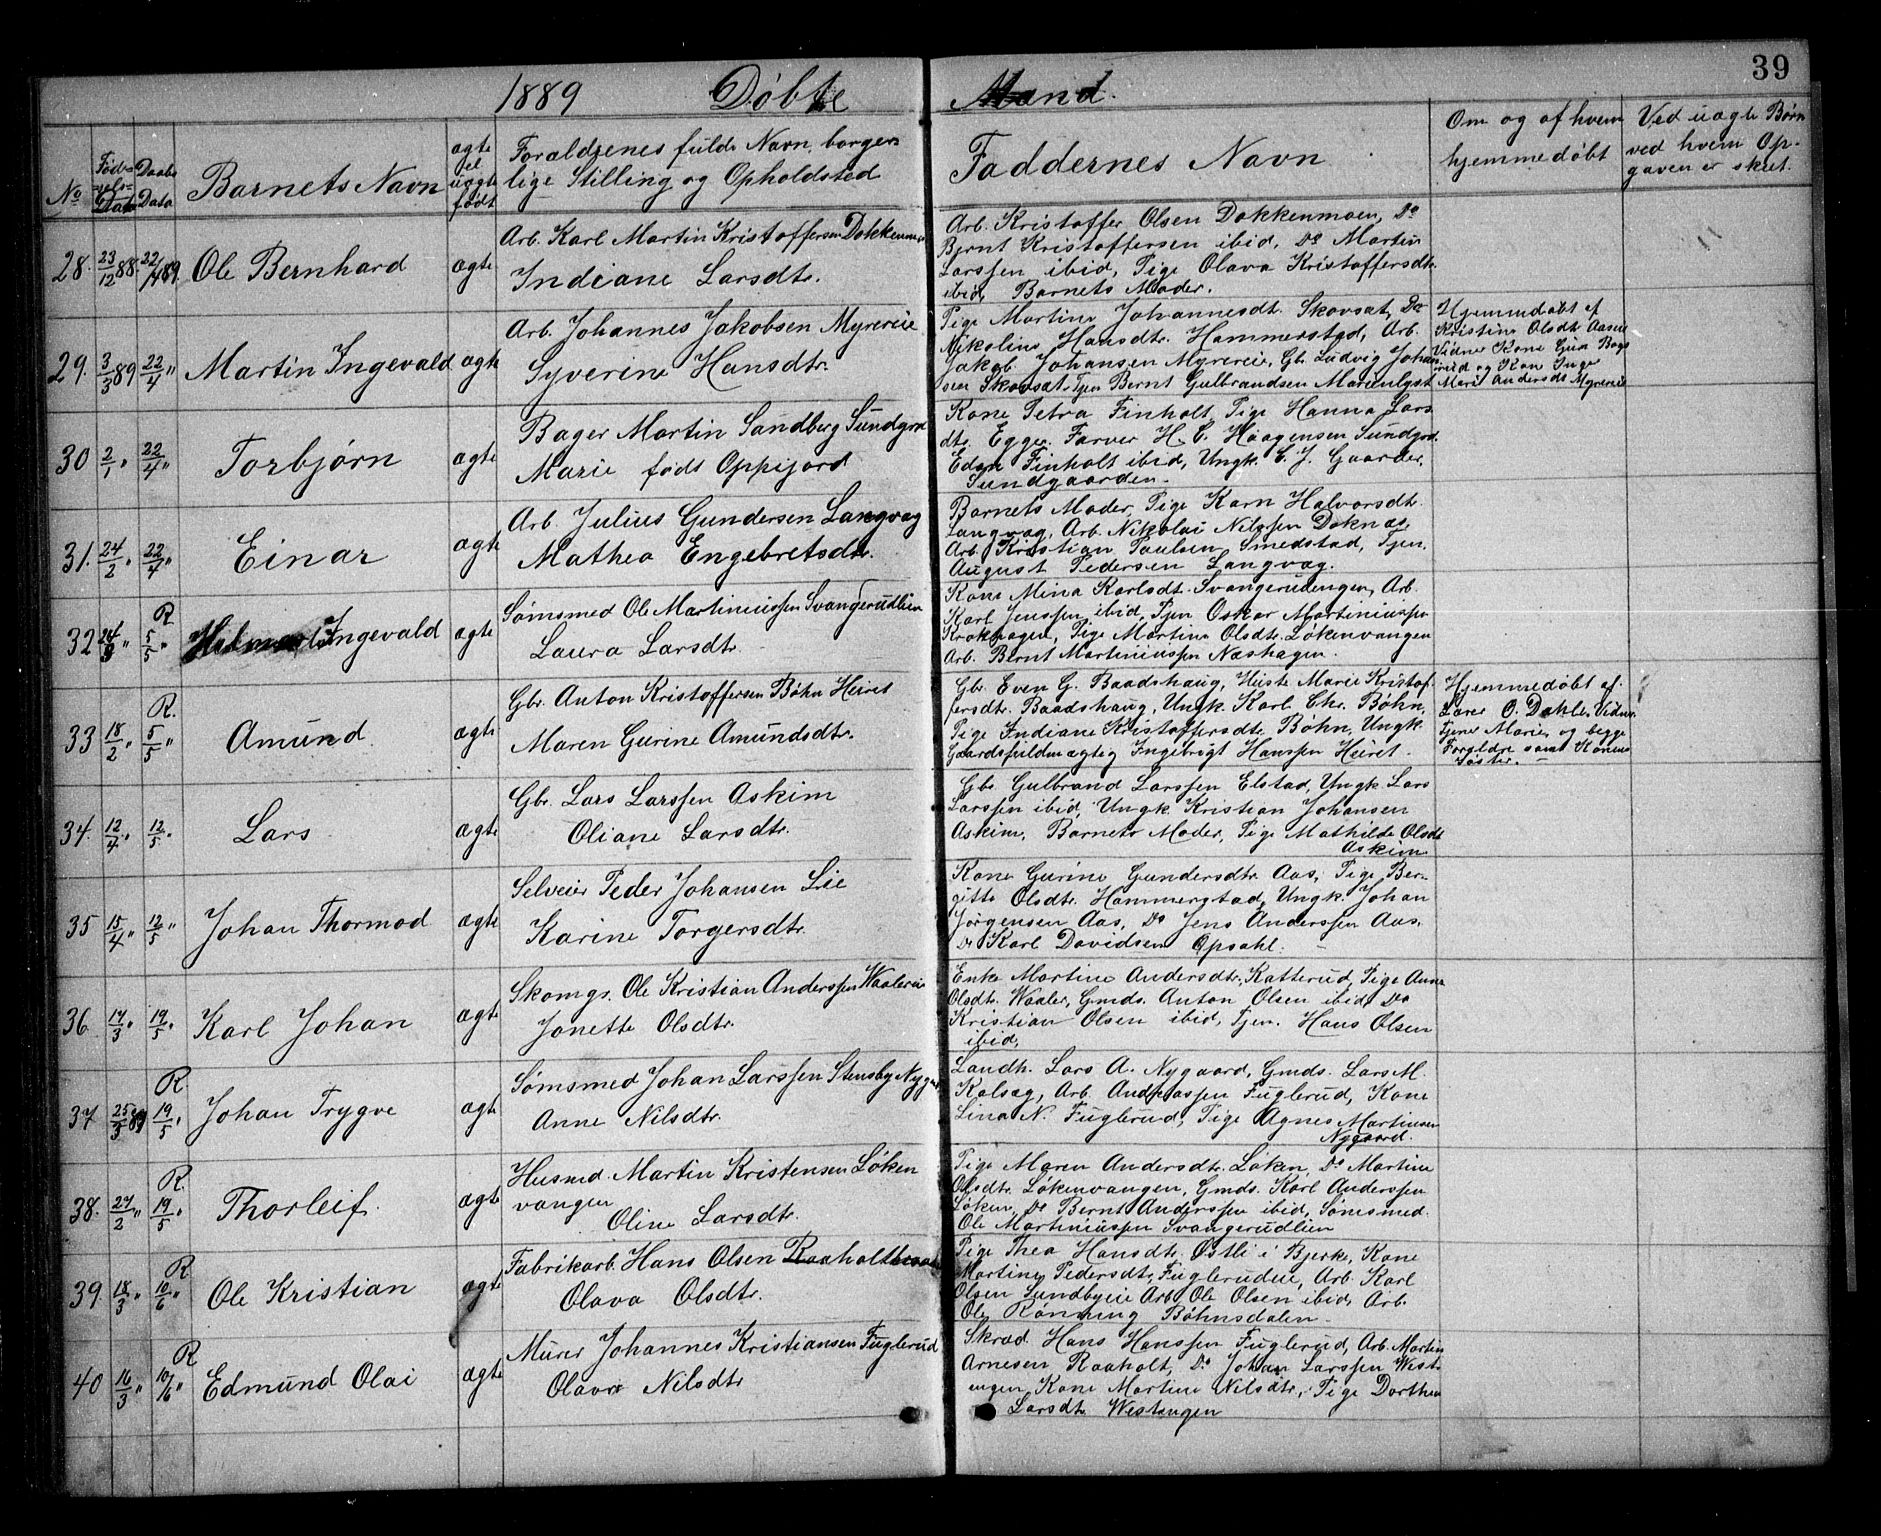 39
1889 Döbte Mænd.
No
Föd-
sels-
Data
Daabs
Data
Barnets Navn
ægte
el
uægte
født
Forældrenes fulde Navn, borger-
lige Stilling og Opholdsted
Faddernes Navn
Om og af hvem
hjemmedøbt
Ved uægte Børn
ved hvem Op-
gaven er skeet.
28. 23/12 88. 22/4 89. Ole Bernhard ægte
Arb. Karl Martin Kristoffersen Dokkenmoen
Indiane Larsdtr.
Arb. Kristoffer Olsen Dokkenmoen, Do
Bernt Kristoffersen ibid, Do Martin
Larssen ibid, Pige Olava Kristoffersdtr.
ibid, Barnets Moder.
29. 3/3 89 22/4 " Martin Ingevald ægte
Arb. Johannes Jakobsen Myrereie
Syverine Hansdtr.
Pige Martine Johannesdt. Skovsæt, Do
Nikoline Hansdtr. Hammerstad, Arb.
Jakob Johansen Myrereie, Gb. Ludvig Johan-
sen Skovsæt, Tjen Bernt Gulbrandsen Marienlyst
Hjemmedøbt af
Kristine Olsdt Aasen
Vidner Kone Guri Bogs
rud og Kone Inger
Marie Andersdt Myrereie
30 2/1 " 22/4 " Torbjørn ægte
Bager Martin Sandberg Sundgrd
Marie født Oppijord
Kone Petra Finholt, Pige Hanna Lars
dtr. Egger. Farver H. C. Haagensen Sundgrd.
Edon Finholt ibid, Ungk. C. J. Gaarder,
Sundgaarden.
31. 24/2 " 22/4 " Einar ægte
Arb. Julius Gundersen Langvag
Mathea Engebretsdtr.
Barnets Moder, Pige Karn Halvorsdt.
Langvag, Arb. Nikolai Nilssen Doknæs
Arb. Kristian Paulsen Smedstad, Tjen.
August Pedersen Langvag.
32 24/3 " R 5/5 " Ingevald ægte
Sømsmed Ole Martiniussen Svangerudlien
Laura Larsdtr.
Kone Mina Karlsdt. Svangerudengen, Arb.
Karl Jenssen ibid, Tjen Oskar Martiniussen
Krokhagen, Pige Martine Olsdtr. Løkenvangen
Arb. Bernt Martiniussen Næshagen.
33 18/2 " R. 5/5 " Amund. ægte
Gbr. Anton Kristoffersen Bøhn Heiret
Maren Gurine Amundsdtr.
Gbr. Even G. Baadshaug, Huste Marie Kristof-
fersdtr. Baadshaug, Ungk. Karl Chr. Bøhn,
Pige Indiane Kristoffersdtr. Bøhn, Ungk
Gaardsfuldmægtig Ingebrigt Hanssen Heiret.
Hjemmedøbt af.
Lærer O. Dahle. Vidner
Tjener Marie, og begge
Forældre samt Konens
Søster. –
34. 12/4 " 12/5 " Lars ægte
Gbr. Lars Larssen Askim
Oliane Larsdtr.
Gbr. Gulbrand Larssen Elstad, Ungk Lars
Larssen ibid, Ungk. Kristian Johansen
Askim, Barnets Moder, Pige Mathilde Olsdt
Askim
35 15/4 " 12/5 " Johan Thormod ægte
Selveier Peder Johansen Lie
Karine Torgersdtr.
Kone Gurine Gundersdtr. Aas, Pige Ber-
gitte Olsdtr. Hammerstad, Ungk. Johan
Jørgensen Aas, Do Jens Anderssen Aas,
Do Karl Davidsen Opsahl.
36 17/3 " 19/5 " Karl Johan ægte
Skomgr. Ole Kristian Anderssen Waalereie
Jonette Olsdtr.
Enke Martine Andersdtr. Katterud, Pige Anne
Olsdtr. Waaler, Gmds. Anton Olsen ibid, Do
Kristian Olsen ibid, Tjen. Hans Olsen
ibid,
37 25/3 89 R. 19/5 " Johan Trygve ægte
Sømsmed Johan Larssen Stensby Nygrd
Anne Nilsdtr.
Landh. Lars A. Nygaard, Gmds. Lars M.
Kolsæg, Arb. Andreassen Fuglerud, Kone
Lina N. Fuglerud, Pige Agnes Martinsen
Nygaard.
38. 27/2 " R. 19/5 " Thorleif. ægte
Husmd Martin Kristensen Løken
vangen
Oline Larsdtr.
Pige Maren Andersdtr. Løken, Do Martine
Olsdtr. Løkenvangen, Gmds. Karl Anderssen
Løken, Do Bernt Anderssen ibid, Sømsmed.
Ole Martiniussen Svangerudlien
39 18/3 " R 10/6 " Ole Kristian ægte
Fabrikarb. Hans Olsen Raaholtbraaten
Olava Olsdtr.
Pige Thea Hansdtr. Østli i Bjerke, Kone
Martine Pedersdt. Fuglerudeie, Arb. Karl
Olsen Sundbyeie Arb. Ole Olsen ibid, Arb.
Ole Rønning Bøhnsdalen
40 16/3 " R 10/6 " Edmund Olai ægte
Murer Johannes Kristiansen Fuglerud
Olava Nilsdtr
Skræd. Hans Hanssen Fuglerud, Arb. Martin
Arnesen Raaholt, Do Johan Larssen West-
engen, Kone Martine Nilsdtr., Pige Dorthea
Larsdtr Westengen